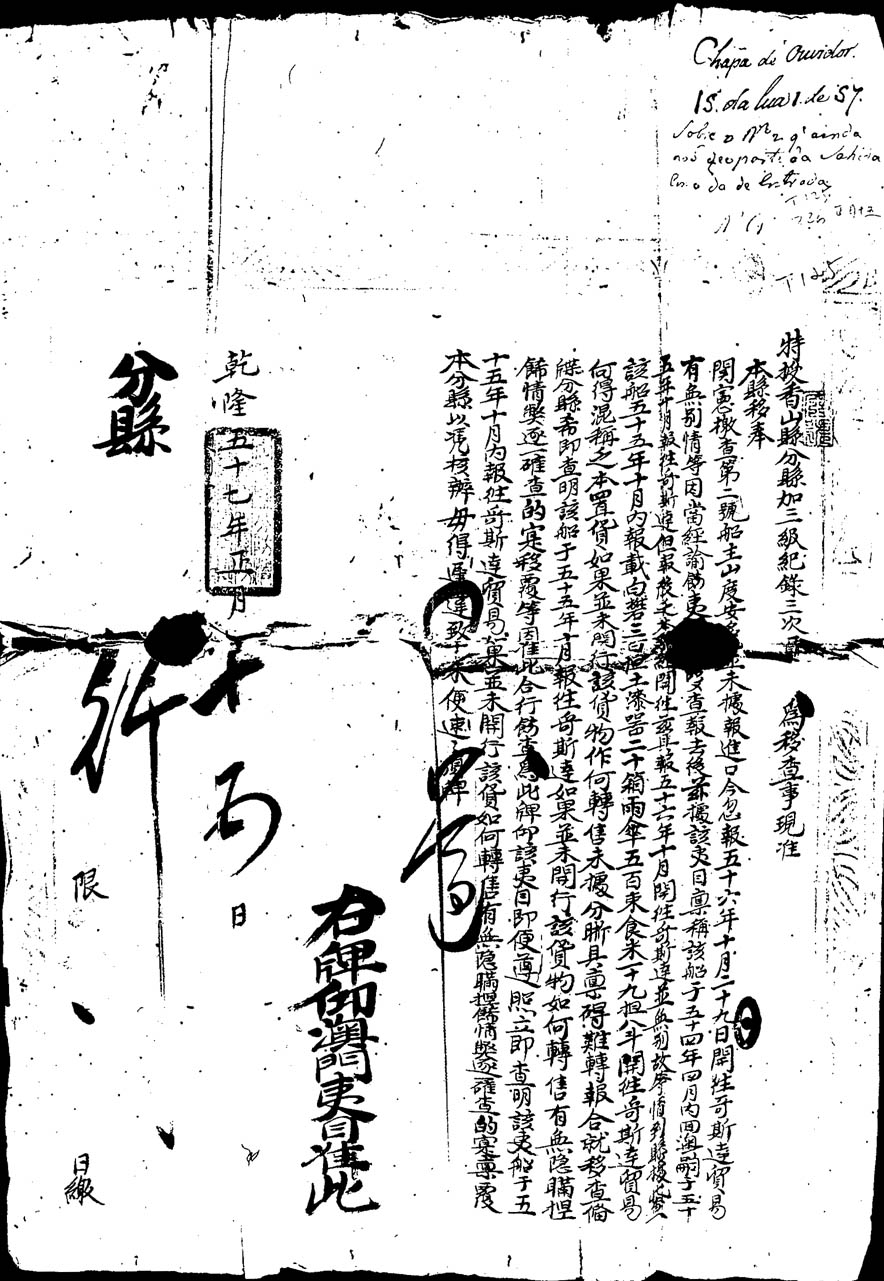 Chapa de Ouvidor.
15. da lua 1. de 57.
Sobre o Nº 2 q' ainda
da Sahida
o da de Entrada
T125
特授香山縣分縣加三級紀錄三次 為移查事現准
本縣移奉
關憲檄查第二號船主山度安 並未據報進口今忽報五十六年十月二十九日開往哥斯達貿易
有無別情等因當經諭飭夷 查報去後茲據該夷目稟稱該船于五十四年四月內回澳嗣于五十
五年十月報往哥斯達但報後 開往茲具報五十六年十月開往哥斯達並無別故等情到縣據此
該船五十五年十月內報載向礬三百担土漆器二十箱雨傘五百束食米一十九担八斗開往哥斯達貿易
何得混稱乏本置貨如果並未開行該貨物作何轉售未據分晰具稟碍難轉報合就移查備
牒分縣希即查明該船于五十五年十月報往哥斯達如果並未開行該貨物如何轉售有無隱瞞捏
飾情獘逐一確查的寔移覆等因准此合行飭查為此牌仰該夷目即便遵照立即查明該夷船于五
十五年十月內報往哥斯達貿易 果並未開行該貨如何轉售有無隐瞞捏飾情獘逐確查的寔稟覆
本分縣以凴核辦毋得遲違致 未便速 須牌
右牌仰澳門夷目准此
乾隆五十七年正月十 日
分縣 行
限 日繳